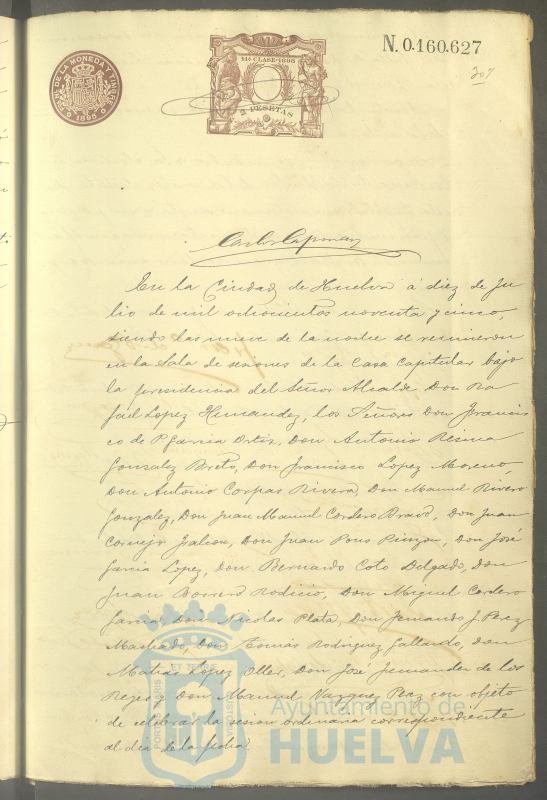 N. 0.160.627
207
FAB. DE LA MONEDA Y TIMBRE
1895
11ª CLASE-1895
2 PESETAS
Carlos Capman
En la Ciudad de Huelva á diez de Ju
lio de mil ochocientos noventa y cinco,
siendo las nueve de la noche se reunieron
en la Sala de sesiones de la Casa Capitular bajo
la presidencia del Señor Alcalde Don Ra
fael Lopez Hernandez, los Señores Don Francis
co de P. Garcia Ortiz, Don Antonio Resina
Gonzalez Prieto, Don Francisco Lopez Moreno,
Don Antonio Corpas Rivera, Don Manuel Rivero
Gonzalez, Don Juan Manuel Cordero Bravo, Don Juan
Cornejo Don Juan Pons Pinzon, Don José
Garcia Lopez, Don Bernardo Coto Delgado, Don
Juan Borrero Rodicio, Don Miguel Cordero
Garcia, Don Nicolas Plata, Don Fernando J. Perez
Machado, Don Tomás Rodriguez Gallardo, Don
Matias Lopez Oller, Don José Fernandez de los
Reyes y Don Manuel Vazquez Perez con objeto
de celebrar la sesion ordinaria correspondiente
al dia de la fecha.
Ayuntamiento de
HUELVA